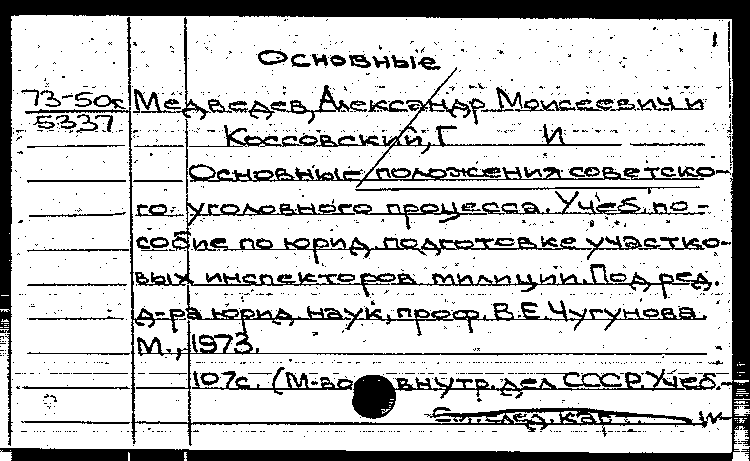 1
Основные
73-50с Медведев, Александр Моисеевич и
5337
Коссовский, Г И
Основные положения советско-
го уголовного процесса. Учеб. по-
собие по юрид. подготовке участко-
вых инспекторов милиции. Под ред.
д-ра юрид. наук, проф. В.Е. Чугунова.
М., 1973.
107с. (М-во внутр. дел СССР. Учеб.-
след. кар